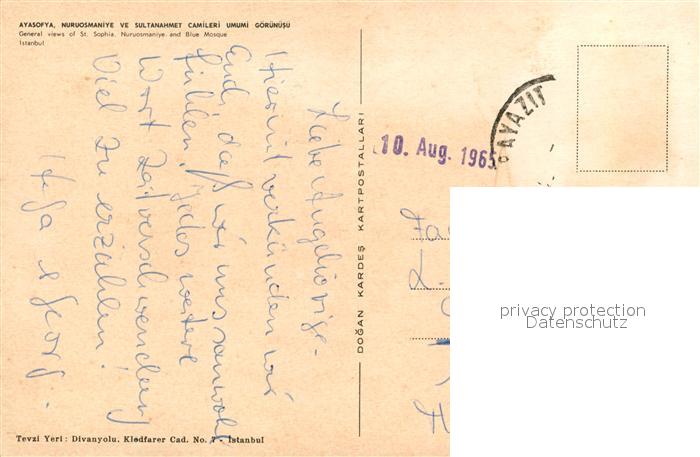 AYASOFYA, NURUOSMANİYE VE SULTANAHMET CAMİLERİ UMUMİ GÖRÜNÜŞÜ
General views of St. Sophia, Nuruosmaniye and Blue Mosque
Istanbul
Liebe Angehörige -
Hiermit verkünden wir
Euch, daß wir uns sauwohl
fühlen. Jedes weitere
Wort Zeitverschwendung
Viel zu erzählen!
Helga & Georg.
DOĞAN KARDEŞ KARTPOSTALLARI
10. Aug. 1965
BAYAZIT
privacy protection
Datenschutz
Tevzi Yeri : Divanyolu, Klodfarer Cad. No. 7 - İstanbul